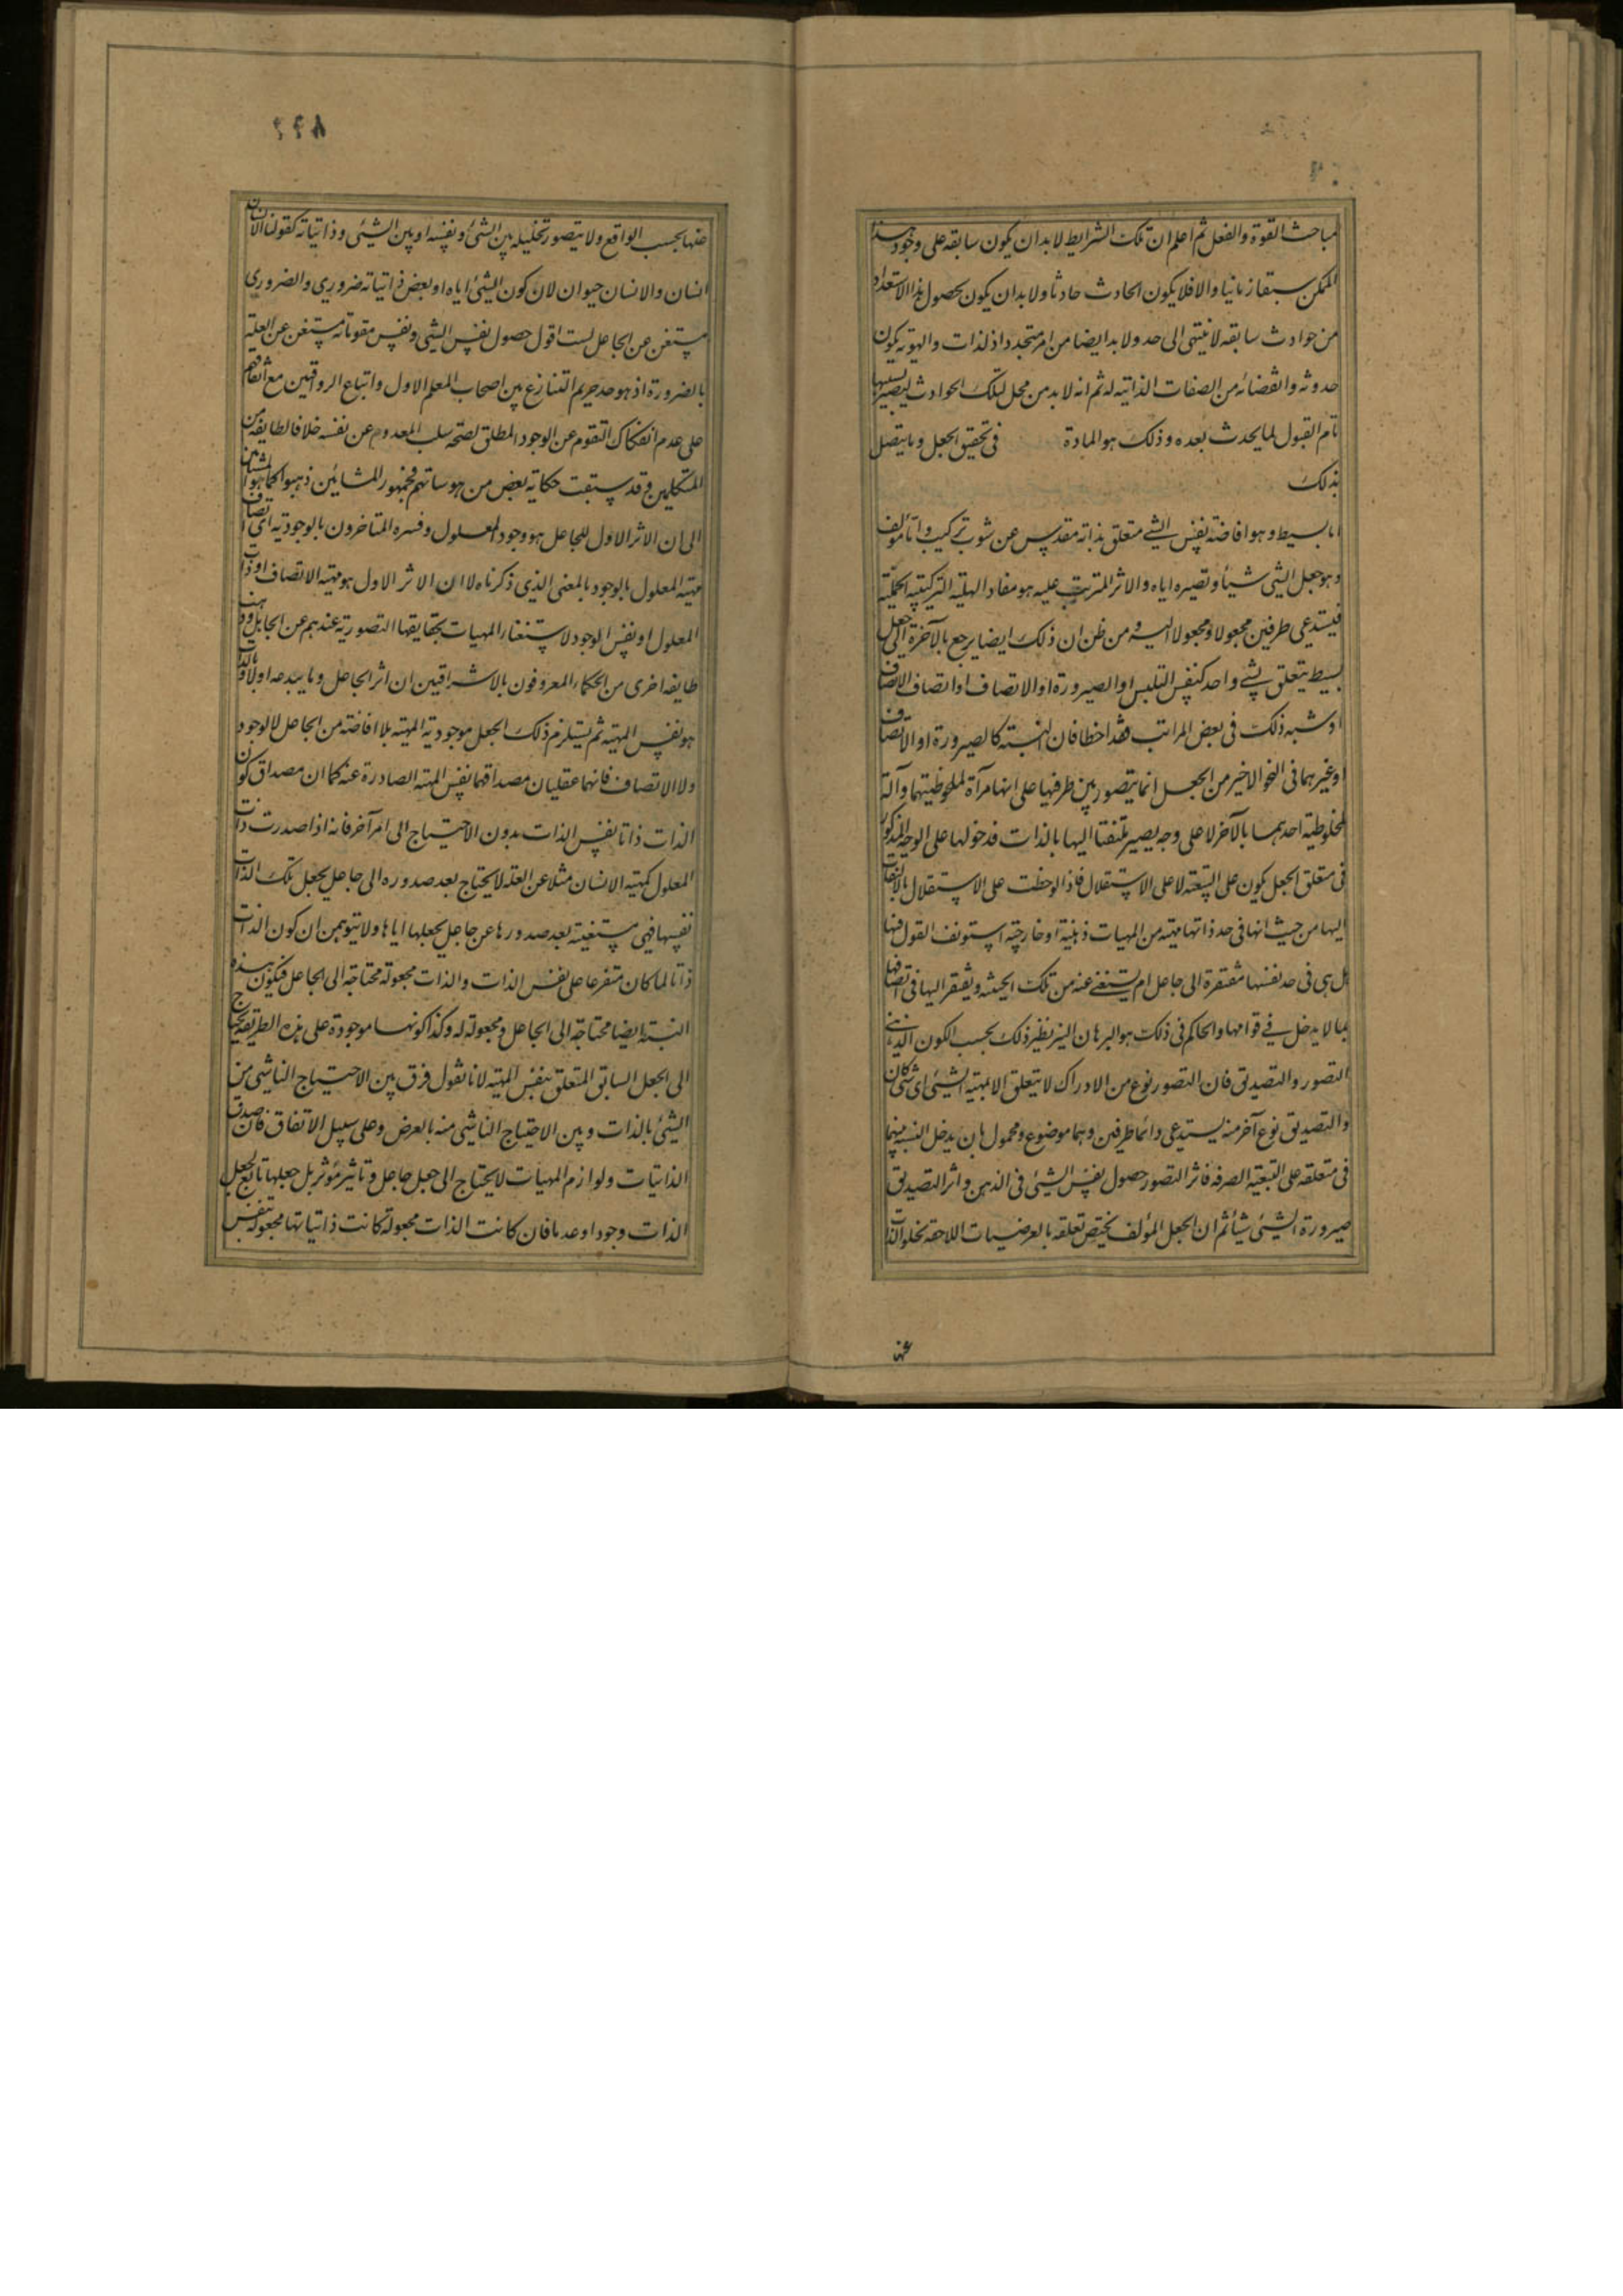 مباحث القوة والفعل ثم اعلم ان تلك الشرايط لابد ان يكون سابقه على وجود هذا
الممكن سبقا زمانيا والا فلا يكون الحادث حادثا ولابد ان يكون بحصول هذا الاستعداد
من حوادث سابقه لا ينتهى الى حد ولابد ايضا من امر متجدد اذ لذات والهويه يكون
حدوثه وانقضائه من الصفات الذاتيه له ثم انه لابد من محل لتلك الحوادث ليصير بسببها
تام القبول لما يحدث بعده وذلك هو المادة في تحقيق الجعل وما يتصل
بذلك
اما بسيط وهو افاضة نفس الشئ متعلق بذاته مقدس عن شوب تركيب واما مؤلف
وهو جعل الشى شيئا وتصيره اياه والاثر المترتب عليه هو مفاد الهلية التركيبيه الحملية
فيستدعى طرفين مجعولا ومجعولا اليه ومن ظن ان ذلك ايضا يرجع بالآخرة الى جعل
بسيط يتعلق بشئ واحد كنفس التلبس او الصيرورة او الاتصاف او اتصاف الاتصاف
او شبه ذلك فى بعض المراتب فقد اخطا فان النسبته كالصيرورة او الاتصاف
او غيرهما فى النحو الاخير من الجعل انما يتصور بين طرفيها على انها مرآة لملحوظيتهما وآلة
لمخلوطية احدهما بالآخر لا على وجه يصير ملتفتا اليها بالذات فدخولها على الوجه المذكور
فى متعلق الجعل يكون على التبعته لا على الاستقلال فاذا لوحظت على الاستقلال بالالتفات
اليها من حيث انها فى حد ذاتها مهيته من المهيات ذهنية او خارجيه استونف القول فيها
هل هى فى حد نفسها مفتقرة الى جاعل ام يستغنى عنه من تلك الحيثيه ويفتقر اليها فى اتصافها
بما لا يدخل فى قوامها والحاكم فى ذلك هو البرهان النير نظير ذلك بحسب الكون الذهنى
التصور والتصديق فان التصور نوع من الادراك لا يتعلق الا بمهية الشئ اى شئ كان
والتصديق نوع آخر منه يستدعى دائما طرفين وهما موضوع ومحمول بان يدخل النسبه بينهما
فى متعلقه على التبعيه الصرفه فاثر التصور حصول نفس الشئ فى الذهن واثر التصديق
صيرورة الشئ شيئا ثم ان الجعل المؤلف يختص تعلقه بالعرضيات اللاحقه لخلو الذات
عنها
عنها بحسب الواقع ولا يتصور تخليله بين الشئ ونفسه او بين الشئ وذاتياته كقولنا الانسان
انسان والانسان حيوان لان كون الشئ اياه او بعض ذاتياته ضرورى والضرورى
مستغن عن الجاعل لست اقول حصول نفس الشى ونفس مقوماته مستغن عن العلة
بالضرورة اذ هو حد حريم التنازع بين اصحاب المعلم الاول واتباع الرواقيين مع اتفاقهم
على عدم انفكاك التقوم عن الوجود المطلق لصحة سلب المعدوم عن نفسه خلافا لطايفة من
المتكلمين وقد سبقت حكاية بعض من هوساتهم فجمهور المشائين ذهبوا كما هو المشهور
الى ان الاثر الاول للجاعل هو وجود المعلول وفسره المتاخرون بالوجودية اى اتصاف
مهيته المعلول بالوجود بالمعنى الذى ذكرناه لا ان الاثر الاول هو مهية الاتصاف او ذات
المعلول او نفس الوجود لاستغناء المهيات بحقايقها التصورية عندهم عن الجاعل وذهبت
طايفه اخرى من الحكماء المعروفون بالاشراقيين ان اثر الجاعل وما يبدعه اولا وبالذات
هو نفس المهيته ثم يستلزم ذلك الجعل موجودية المهيته بلا افاضته من الجاعل لا لوجود
ولا الاتصاف فانهما عقليان مصداقهما نفس المهيه الصادرة عنه كما ان مصداق كون
الذات ذاتا نفس الذات بدون الاحتياج الى امر آخر فانه اذا صدرت ذات
المعلول كمهيته الانسان مثلا عن العلة لا يحتاج بعد صدوره الى جاعل يجعل تلك الذات
نفسها فهى مستغنيته بعد صدورها عن جاعل يجعلها اياها ولا يتوهمن ان كون الذات
ذاتا لما كان متفرعا على نفس الذات والذات مجعولة محتاجه الى الجاعل فيكون هذه
النسبته ايضا محتاجة الى الجاعل ومجعولة له وكذا كونها موجودة على هذه الطريقه يحتاج
الى الجعل السابق المتعلق بنفس المهيته لانا نقول فرق بين الاحتياج الناشى من
الشئ بالذات وبين الاحتياج الناشى منه بالعرض وعلى سبيل الاتفاق فان صدق
الذاتيات ولوازم المهيات لا يحتاج الى جعل جاعل وتاثير مؤثر بل جعلها تابع لجعل
الذات وجودا وعدما فان كانت الذات مجعولة كانت ذاتياتها مجعوله بنفس